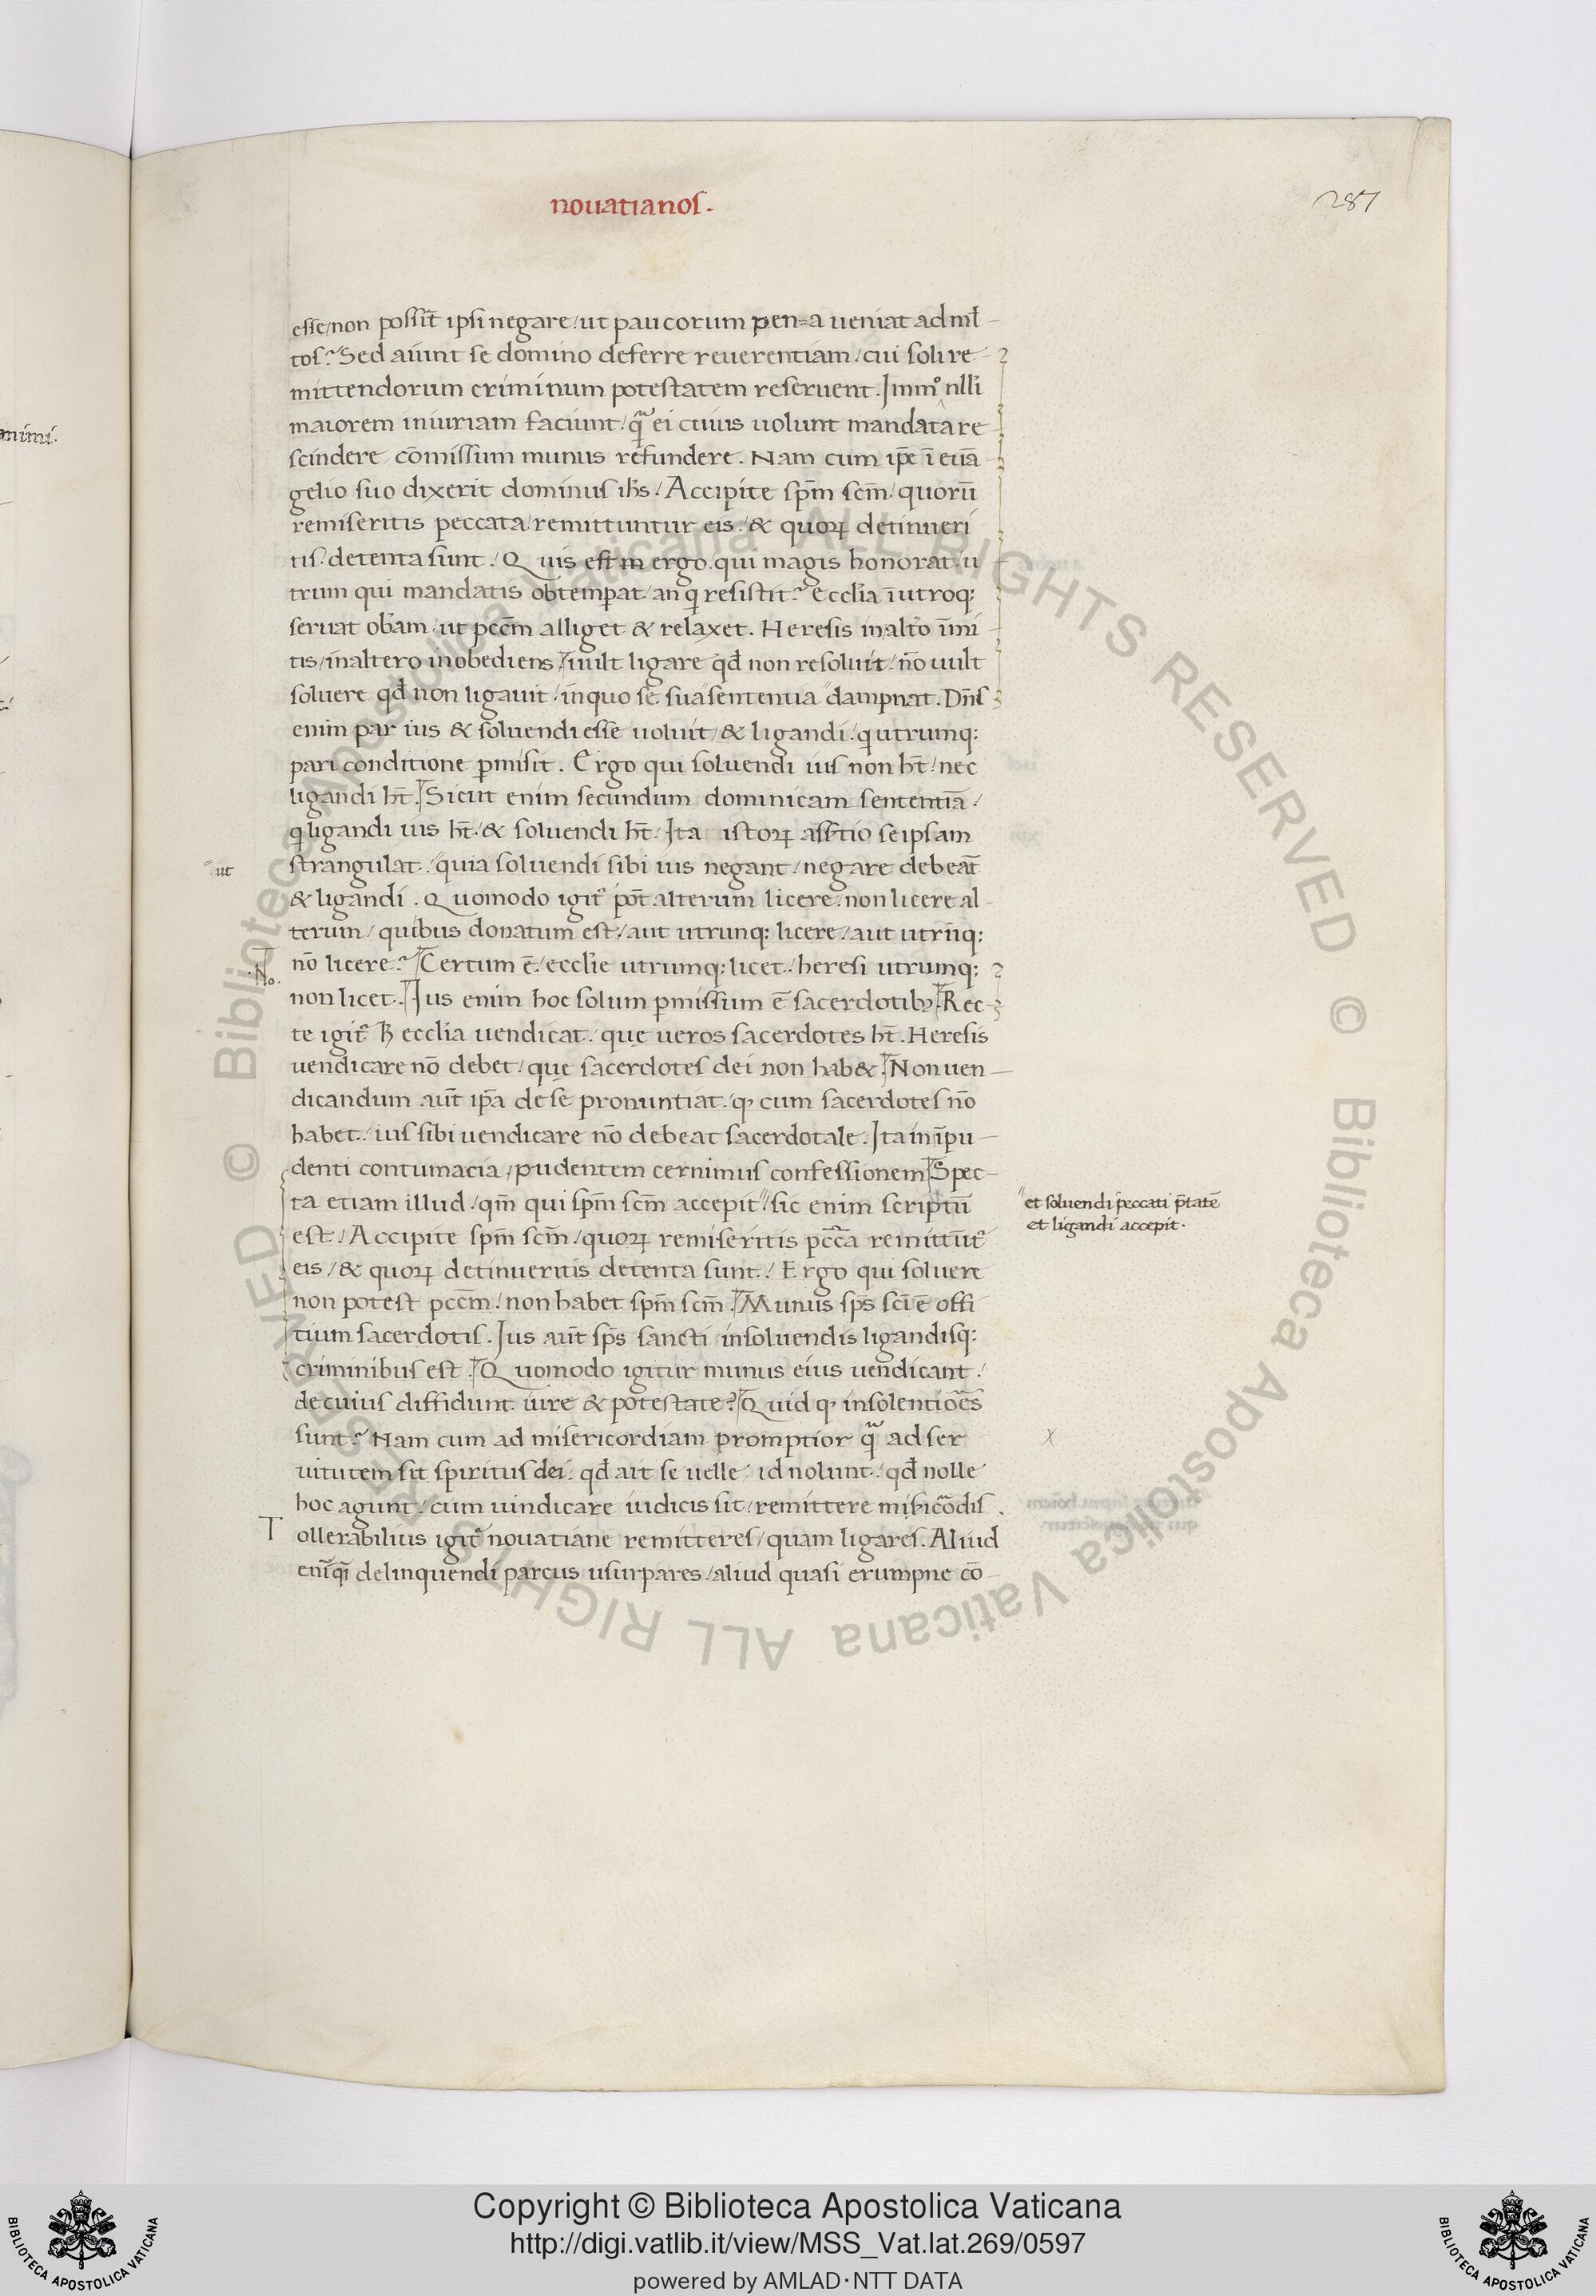 nouatianos.
287
esse/non possit̄ ipsi negare/ut paucorum pen=a ueniat ad ml̄
tos? Sed aiunt se domino deferre reuerentiam/cui soli re
mittendorum criminum potestatem reseruent. Immo nlli
maiorem iniuriam faciunt/q̃ ei cuius uolunt mandata re
scindere cōmissum munus refundere. Nam cum ip̄e ī euā
gelio suo dixerit dominus ih̄s/Accipite sp̄m sc̄m/quorū
remiseritis peccata/remittuntur eis/& quoꝝ detinueri
tis/detenta sunt. Quis est ergo qui magis honorat/u
trum qui mandatis obtemꝑat/an q resistit? Ecclia ī utroq;
seruat obam/ut pcc̄m alliget & relaxet. Heresis in alto īmi
tis/in altero inobediens/uult ligare qd̄ non resoluit/nō uult
soluere qd̄ non ligauit/in quo se sua sententia dampnat. Dn̄s
enim par ius & soluendi esse uoluit/& ligandi/q utrumq;
pari conditione ꝑmisit. Ergo qui soluendi ius non ht̄/nec
ligandi ht̄. Sicut enim secundum dominicam sententiā/
q ligandi ius ht̄/& soluendi ht̄. Ita istoꝝ asst̄io se ipsam
strangulat/"quia soluendi sibi ius negant/negare debeāt
"ut
& ligandi. Quomodo igit᷑ pōt alterum licere/non licere al
terum/quibus donatum est/aut utrunq; licere/aut utrūq;
nō licere? Certum ē/ecclie utrumq; licet/heresi utrumq;
.No.
non licet. Ius enim hoc solum ꝑmissum ē sacerdotibꝫ. Rec
te igit᷑ h ecclia uendicat/que ueros sacerdotes ht̄. Heresis
uendicare nō debet/que sacerdotes dei non hab&. Non uen
dicandum aūt ip̄a de se pronuntiat/ꝙ cum sacerdotes nō
habet/ius sibi uendicare nō debeat sacerdotale. Ita in īpu
denti contumacia/pudentem cernimus confessionem. Spec
ta etiam illud/qm̄ qui sp̄m sc̄m accepit"/sic enim scriptū
"et soluendi peccati p̄tatē
et ligandi accepit.
est/Accipite sp̄m sc̄m/quoꝝ remiseritis pcc̄a remittūt᷑
eis/& quoꝝ detinueritis detenta sunt/Ergo qui soluere
non potest pcc̄m/non habet sp̄m sc̄m. Munus sp̄s sc̄i ē offi
tium sacerdotis. Ius aūt sp̄s sancti in soluendis ligandisq;
criminibus est. Quomodo igitur munus eius uendicant/
de cuius diffidunt iure & potestate? Quid ꝙ insolentiōes
sunt? Nam cum ad misericordiam promptior q̃ ad ser
x
uitutem sit spiritus dei/qd̄ ait se uelle/id nolunt/qd̄ nolle
hoc agunt/cum uindicare iudicis sit/remittere misicōdis.
Tollerabilius igit᷑ nouatiane remitteres/quam ligares. Aliud
eni qi delinquendi parcus usurpares/aliud quasi erumpne cō
mimi.
Copyright © Biblioteca Apostolica Vaticana
http://digi.vatlib.it/view/MSS_Vat.lat.269/0597
powered by AMLAD·NTT DATA
BIBLIOTECA APOSTOLICA VATICANA
BIBLIOTECA APOSTOLICA VATICANA
© Biblioteca Apostolica Vaticana ALL RIGHTS RESERVED © Biblioteca Apostolica Vaticana ALL RIGHTS RESERVED